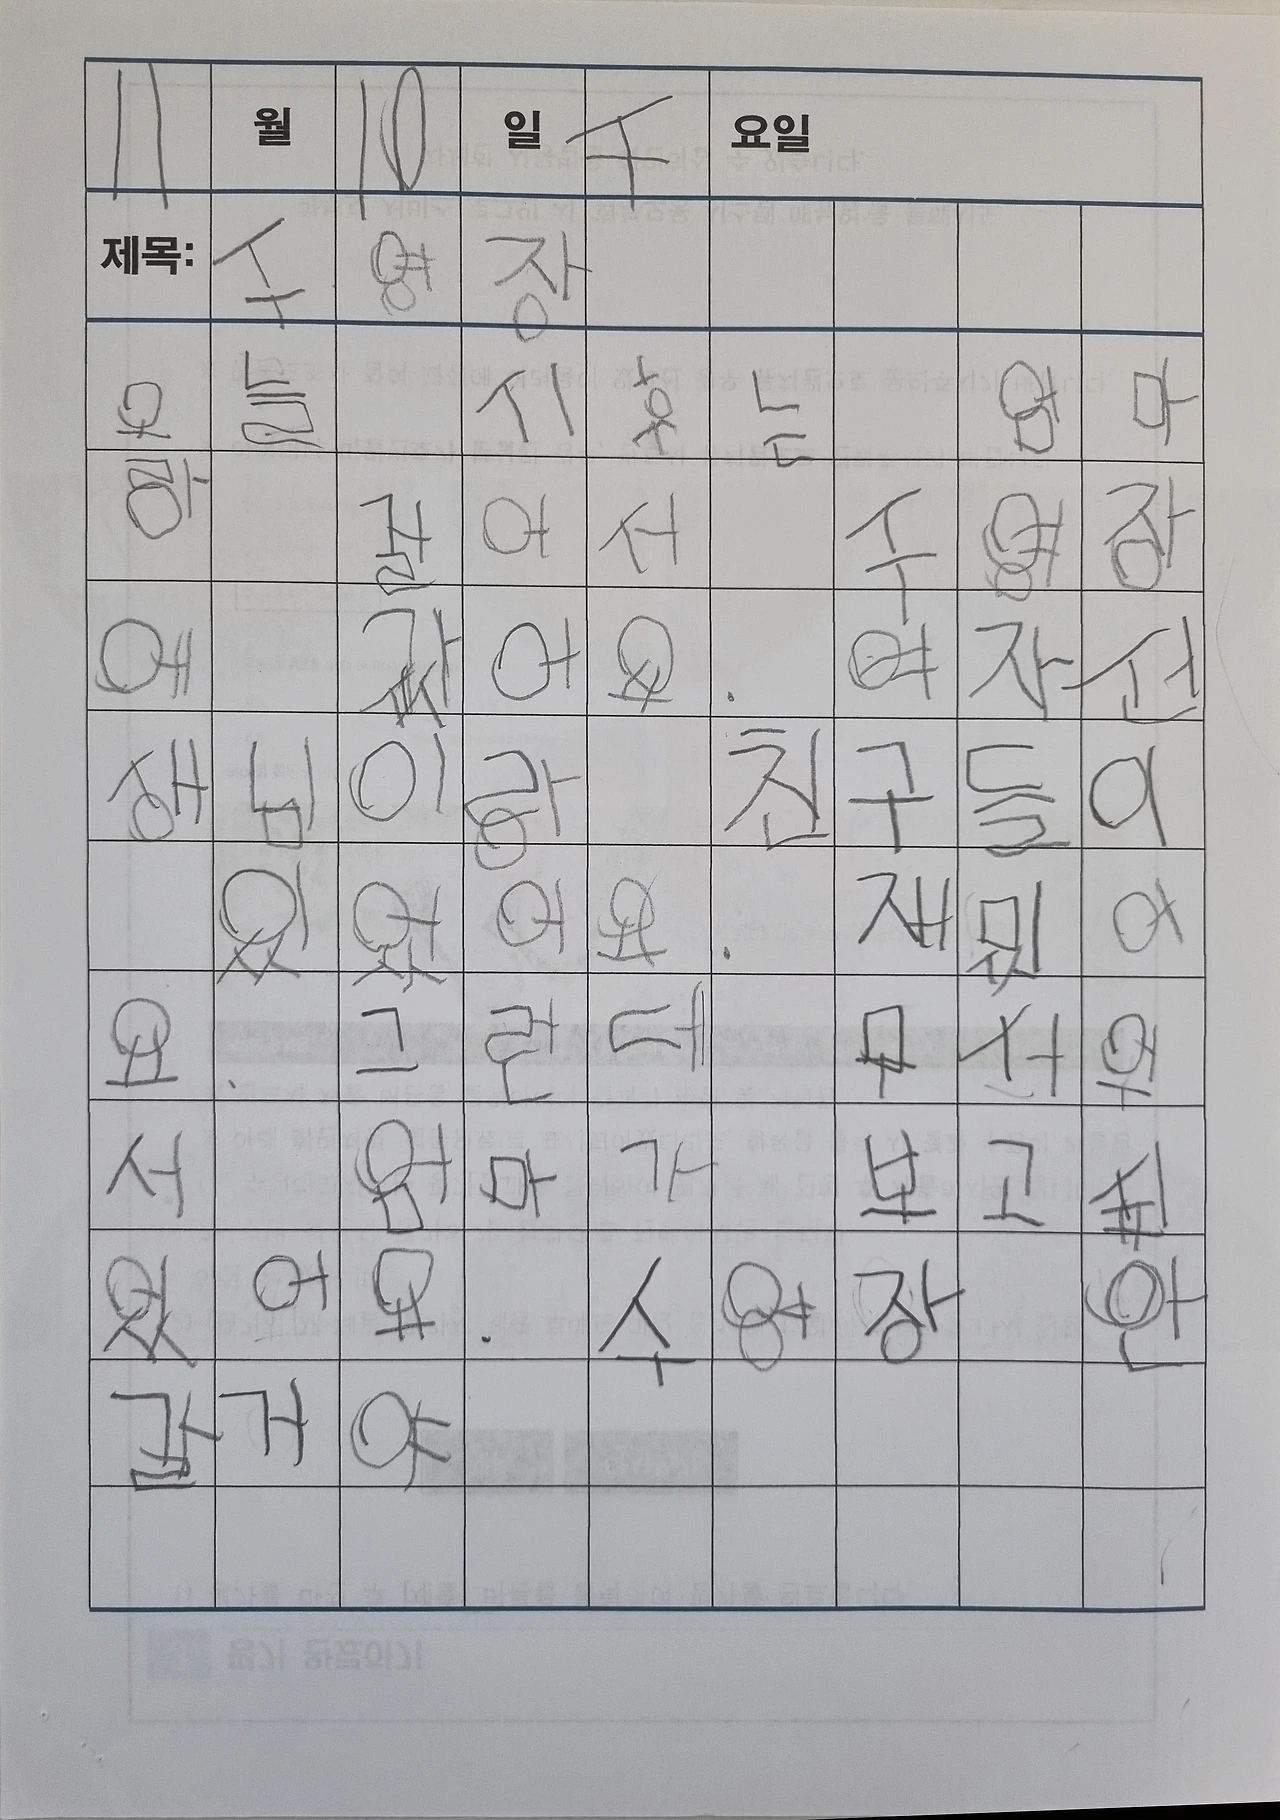 11월 10일 수요일
제목: 수영장
오늘 시웃는 엄마
랑 같어서 수영장
에 갔어요. 여자선
생님이랑 친구들이
있었어요. 재밌어
요. 그런데 무서워
서 엄마가 보고싶
었어요. 수영장 안
갈거야